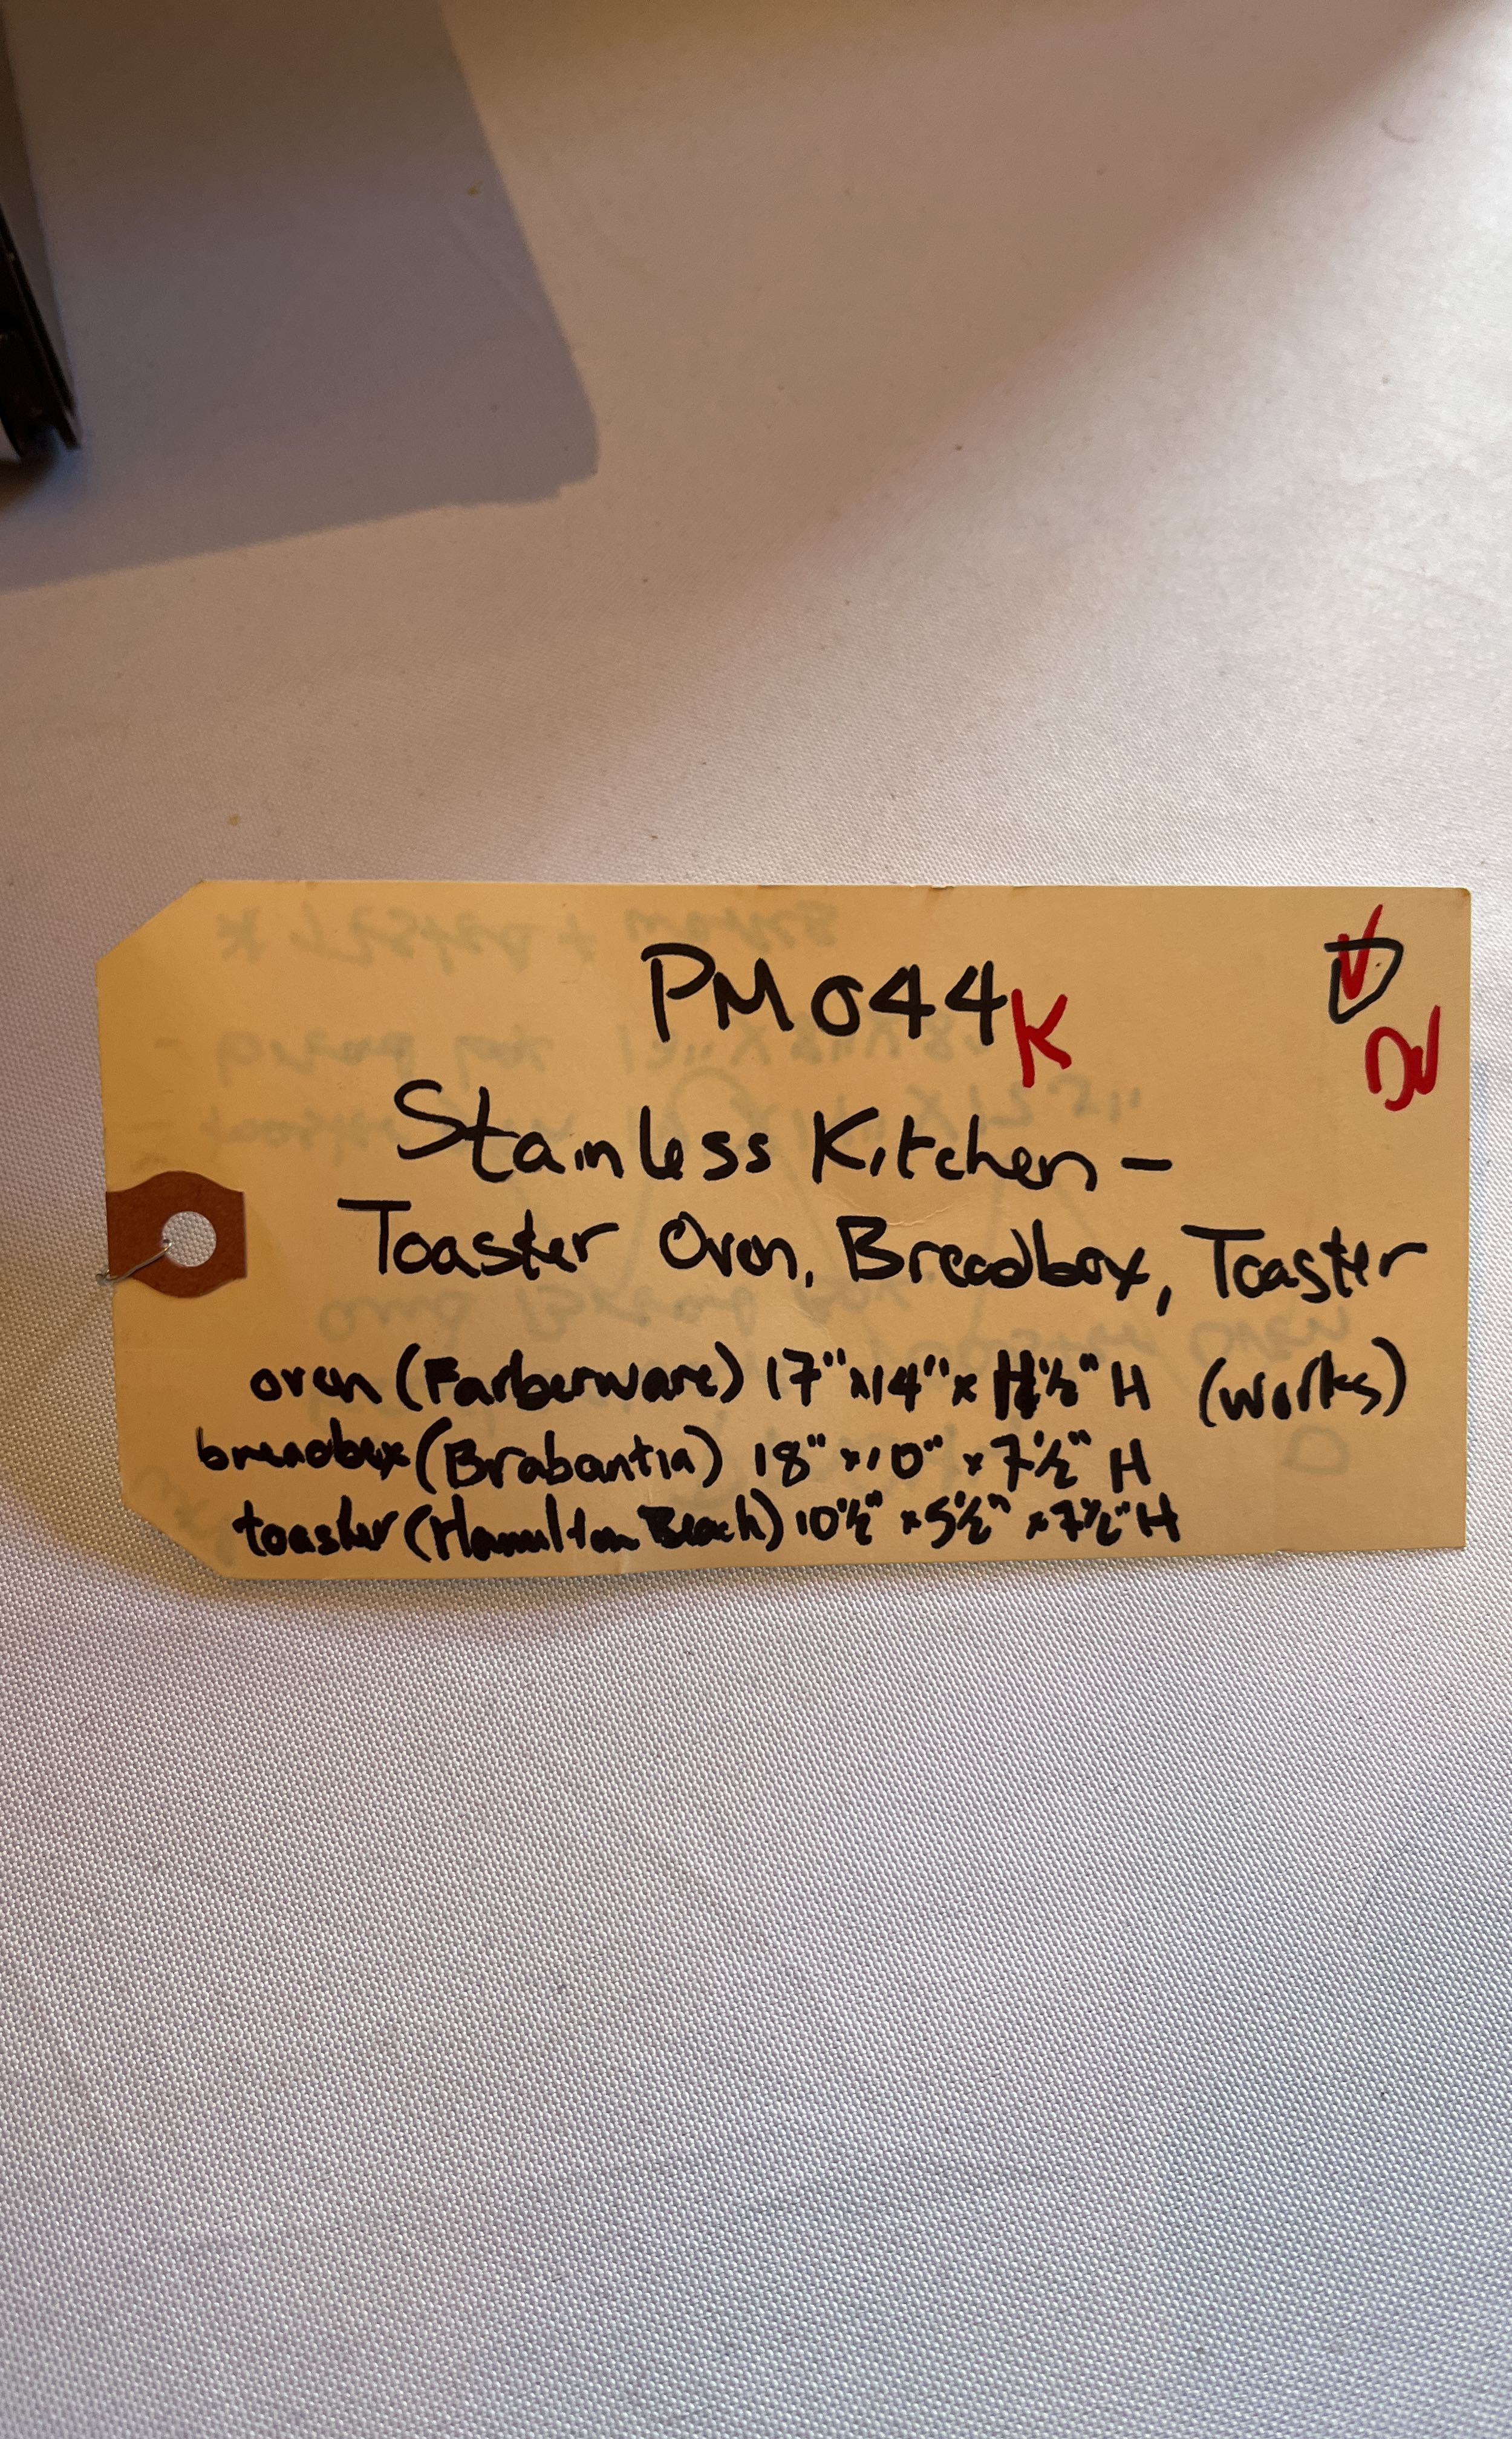 PM044 K
Stainless Kitchen –
Toaster Oven, Breadbox, Toaster
oven (Farberware) 17" x 14" x 11½" H (works)
breadbox (Brabantia) 18" x 10" x 7½" H
toaster (Hamilton Beach) 10½" x 5½" x 7½" H